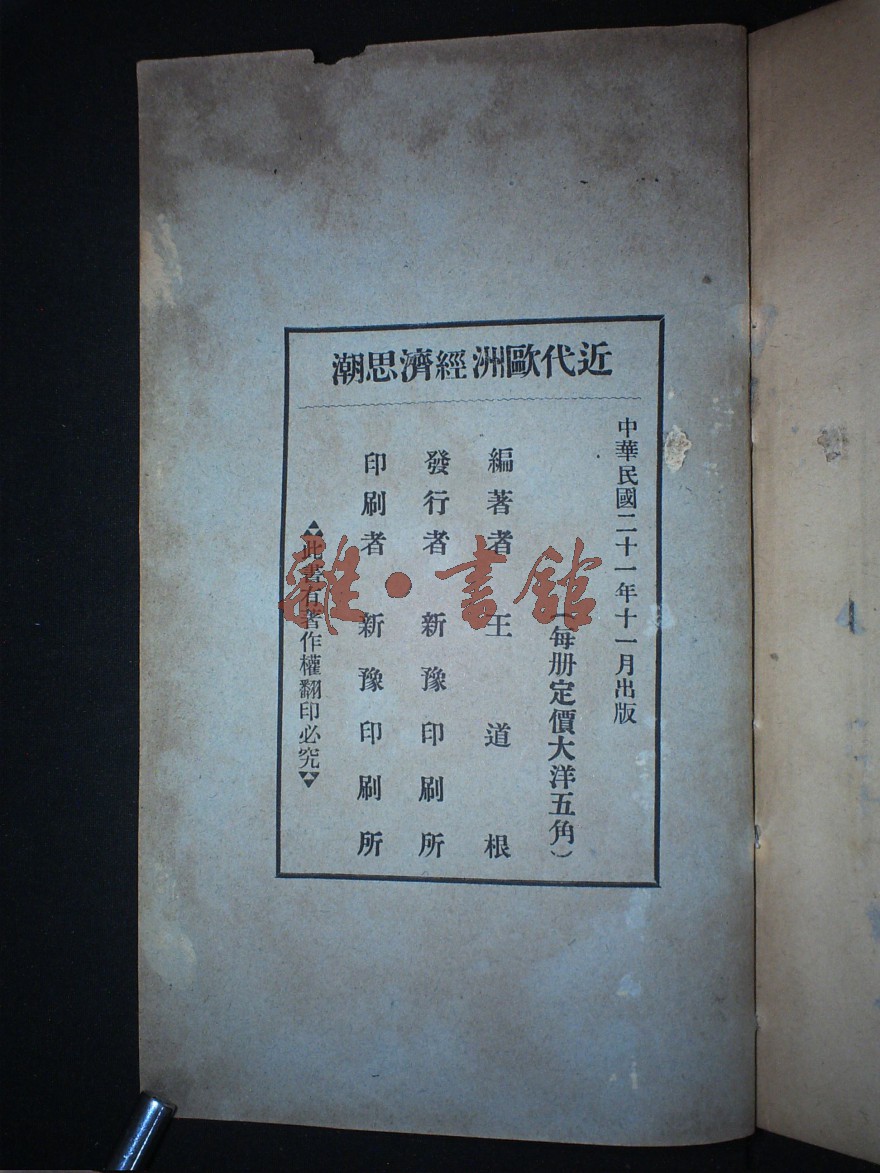 近代歐洲經濟思潮
中華民國二十一年十一月出版
（每册定價大洋五角）
編著者 王道根
發行者 新豫印刷所
印刷者 新豫印刷所
此書有著作權翻印必究
雜·書館